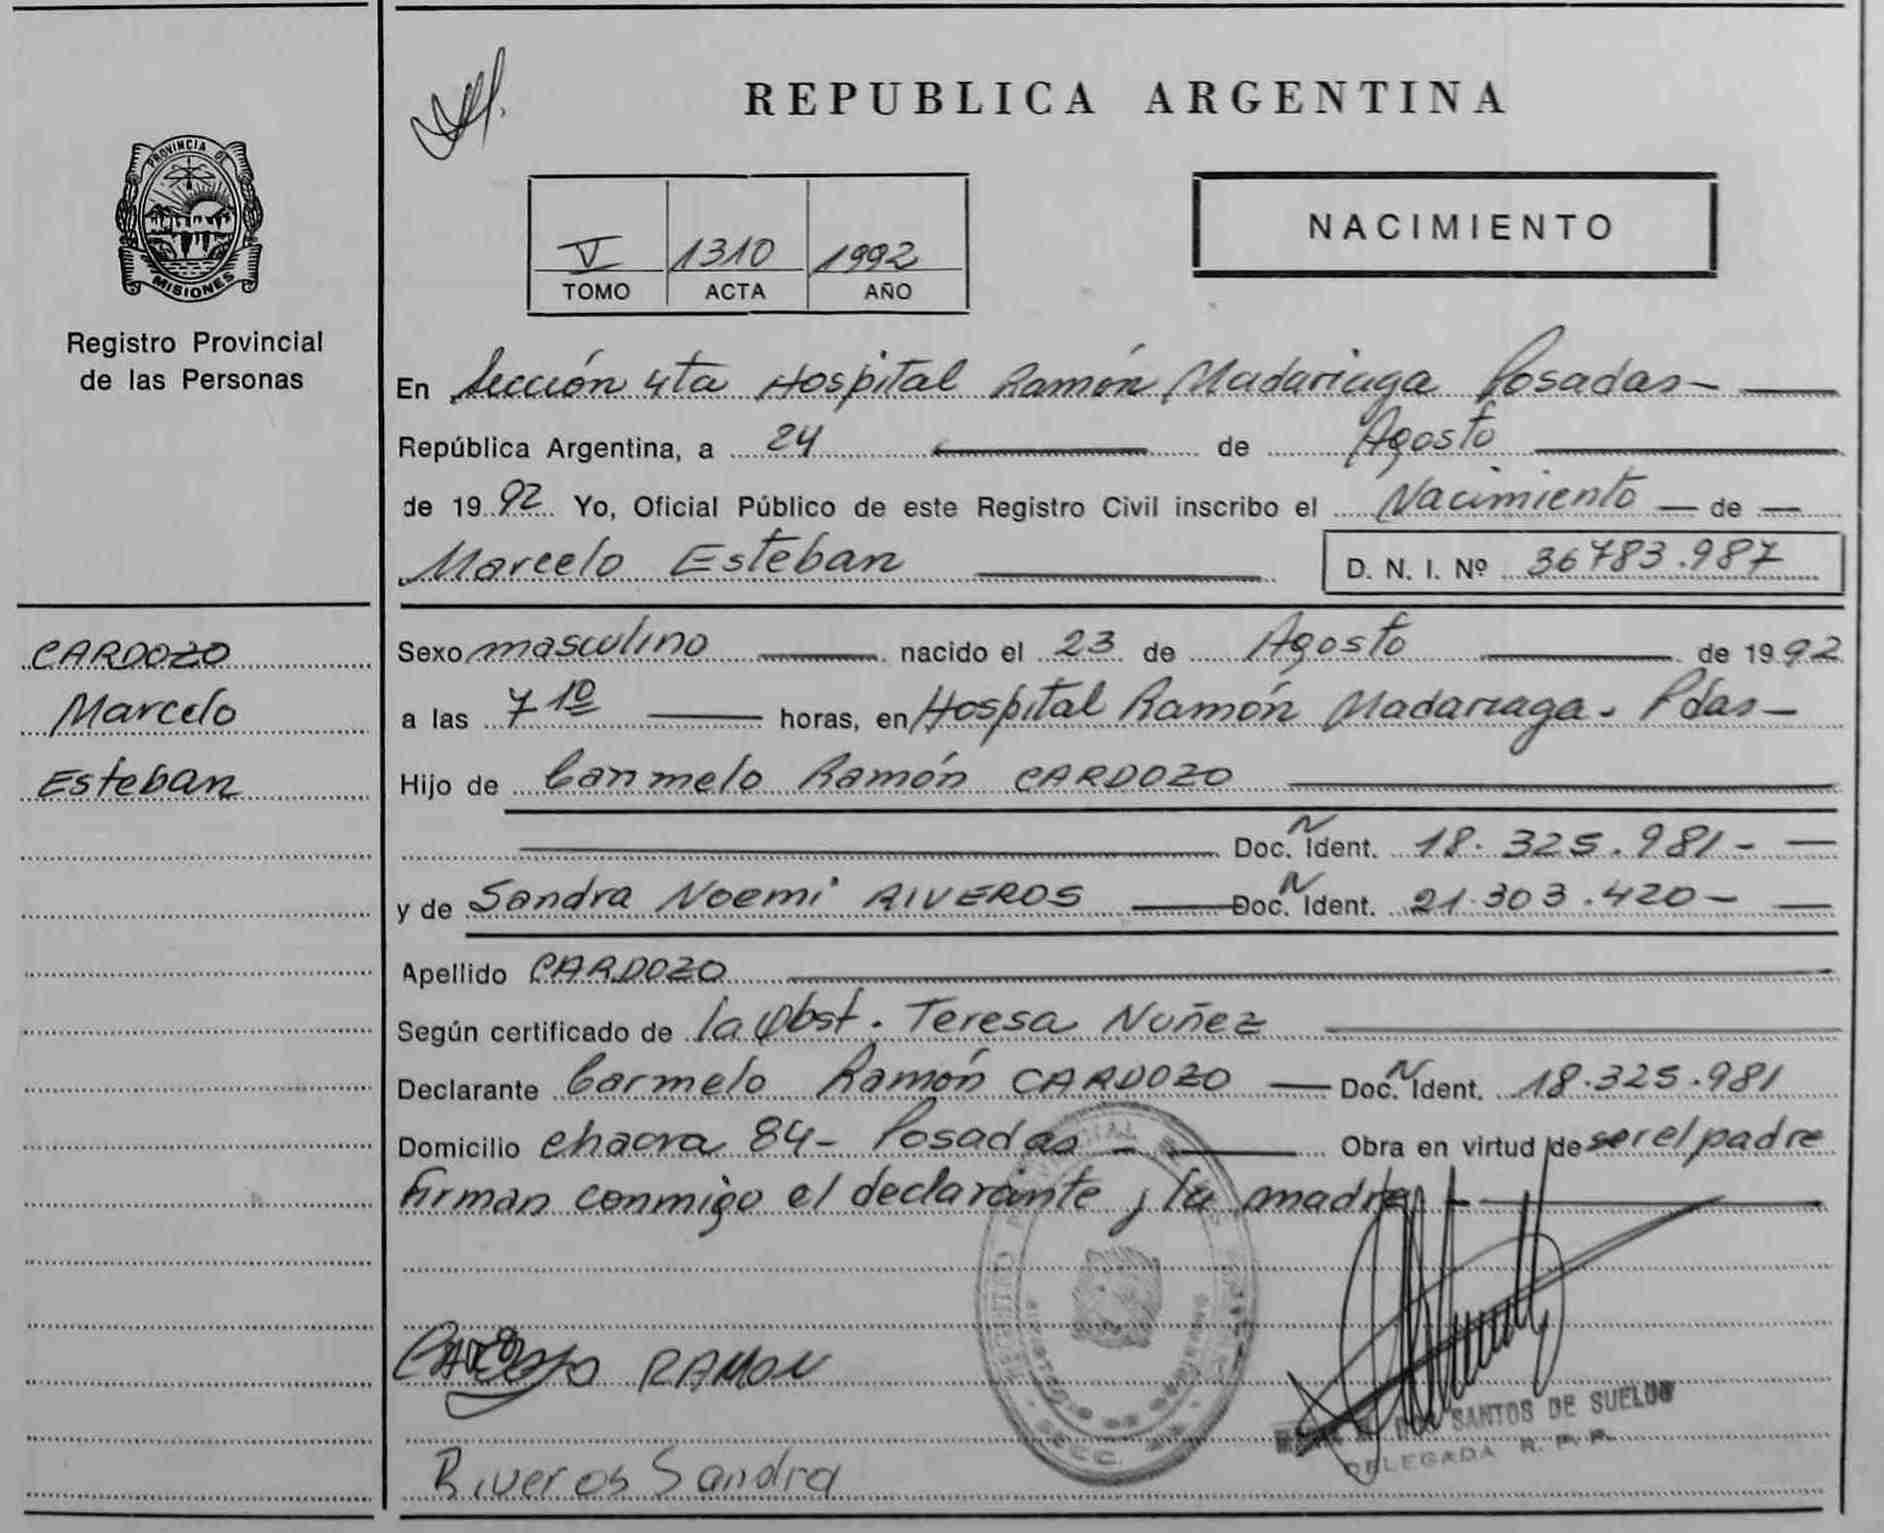 REPUBLICA ARGENTINA
PROVINCIA DE
MISIONES
Registro Provincial
de las Personas
V 1310 1992
TOMO ACTA AÑO
NACIMIENTO
En Sección 4ta Hospital Ramón Madariaga Posadas
República Argentina, a 24 de Agosto
de 1992 Yo, Oficial Público de este Registro Civil inscribo el Nacimiento de
Marcelo Esteban D. N. I. Nº 36783.987
CARDOZO
Marcelo
Esteban
Sexo masculino nacido el 23 de Agosto de 1992
a las 7 10 horas, en Hospital Ramón Madariaga. Pdas
Hijo de Carmelo Ramón CARDOZO
Doc. N Ident. 18.325.981
y de Sandra Noemi RIVEROS Doc. N Ident. 21.303.420
Apellido CARDOZO
Según certificado de la Obst. Teresa Nuñez
Declarante Carmelo Ramón CARDOZO Doc. N Ident. 18.325.981
Domicilio chacra 84- Posadas Obra en virtud de ser el padre
firman conmigo el declarante y la madre
RAMON
SANTOS DE SUELOS
DELEGADA R. P. P.
Riveros Sandra